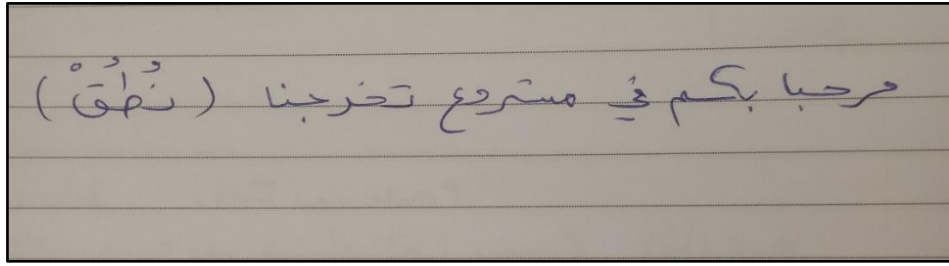 مرحبا بكم في مشروع تخرجنا (نُطُقْ)